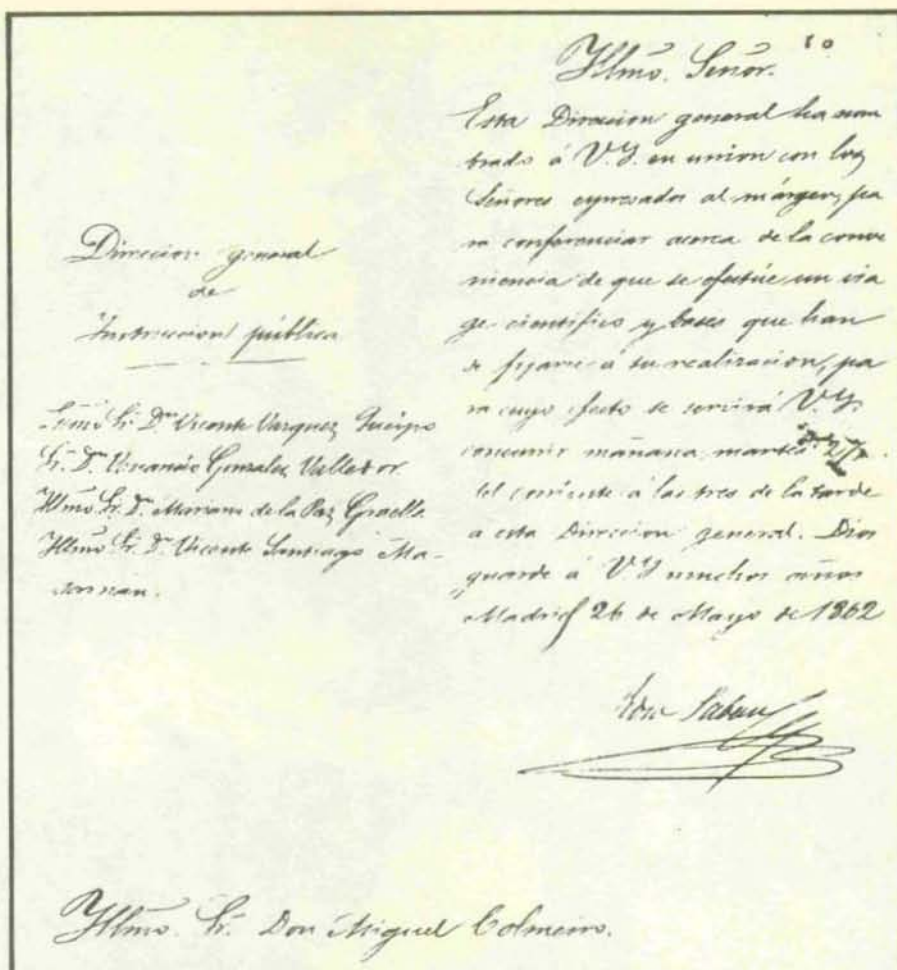 10
Yllmo. Señor.
Esta Direccion general ha nom
brado á V.Y. en union con los
Señores expresados al márgen, pa
ra conferenciar acerca de la conve
niencia de que se efectúe un via
ge cientifico y bases que han
de fijarse á su realizacion, pa
ra cuyo efecto se servirá V.Y.
concurrir mañana martes 27
del corriente á las tres de la tarde
a esta Direccion general. Dios
guarde á V.Y muchos años
Madrid 26 de Mayo de 1862
Direccion general
de
Instruccion pública
Sr. Dn Vicente Vazquez Queipo
Sr. Dn Venancio Gonzalez Valledor.
Yllmo Sr. D. Mariano de la Paz Graells
Yllmo Sr. Dn Vicente Santiago Ma-
sarnau.
Pedro Sabau
Yllmo. Sr. Don Miguel Colmeiro.